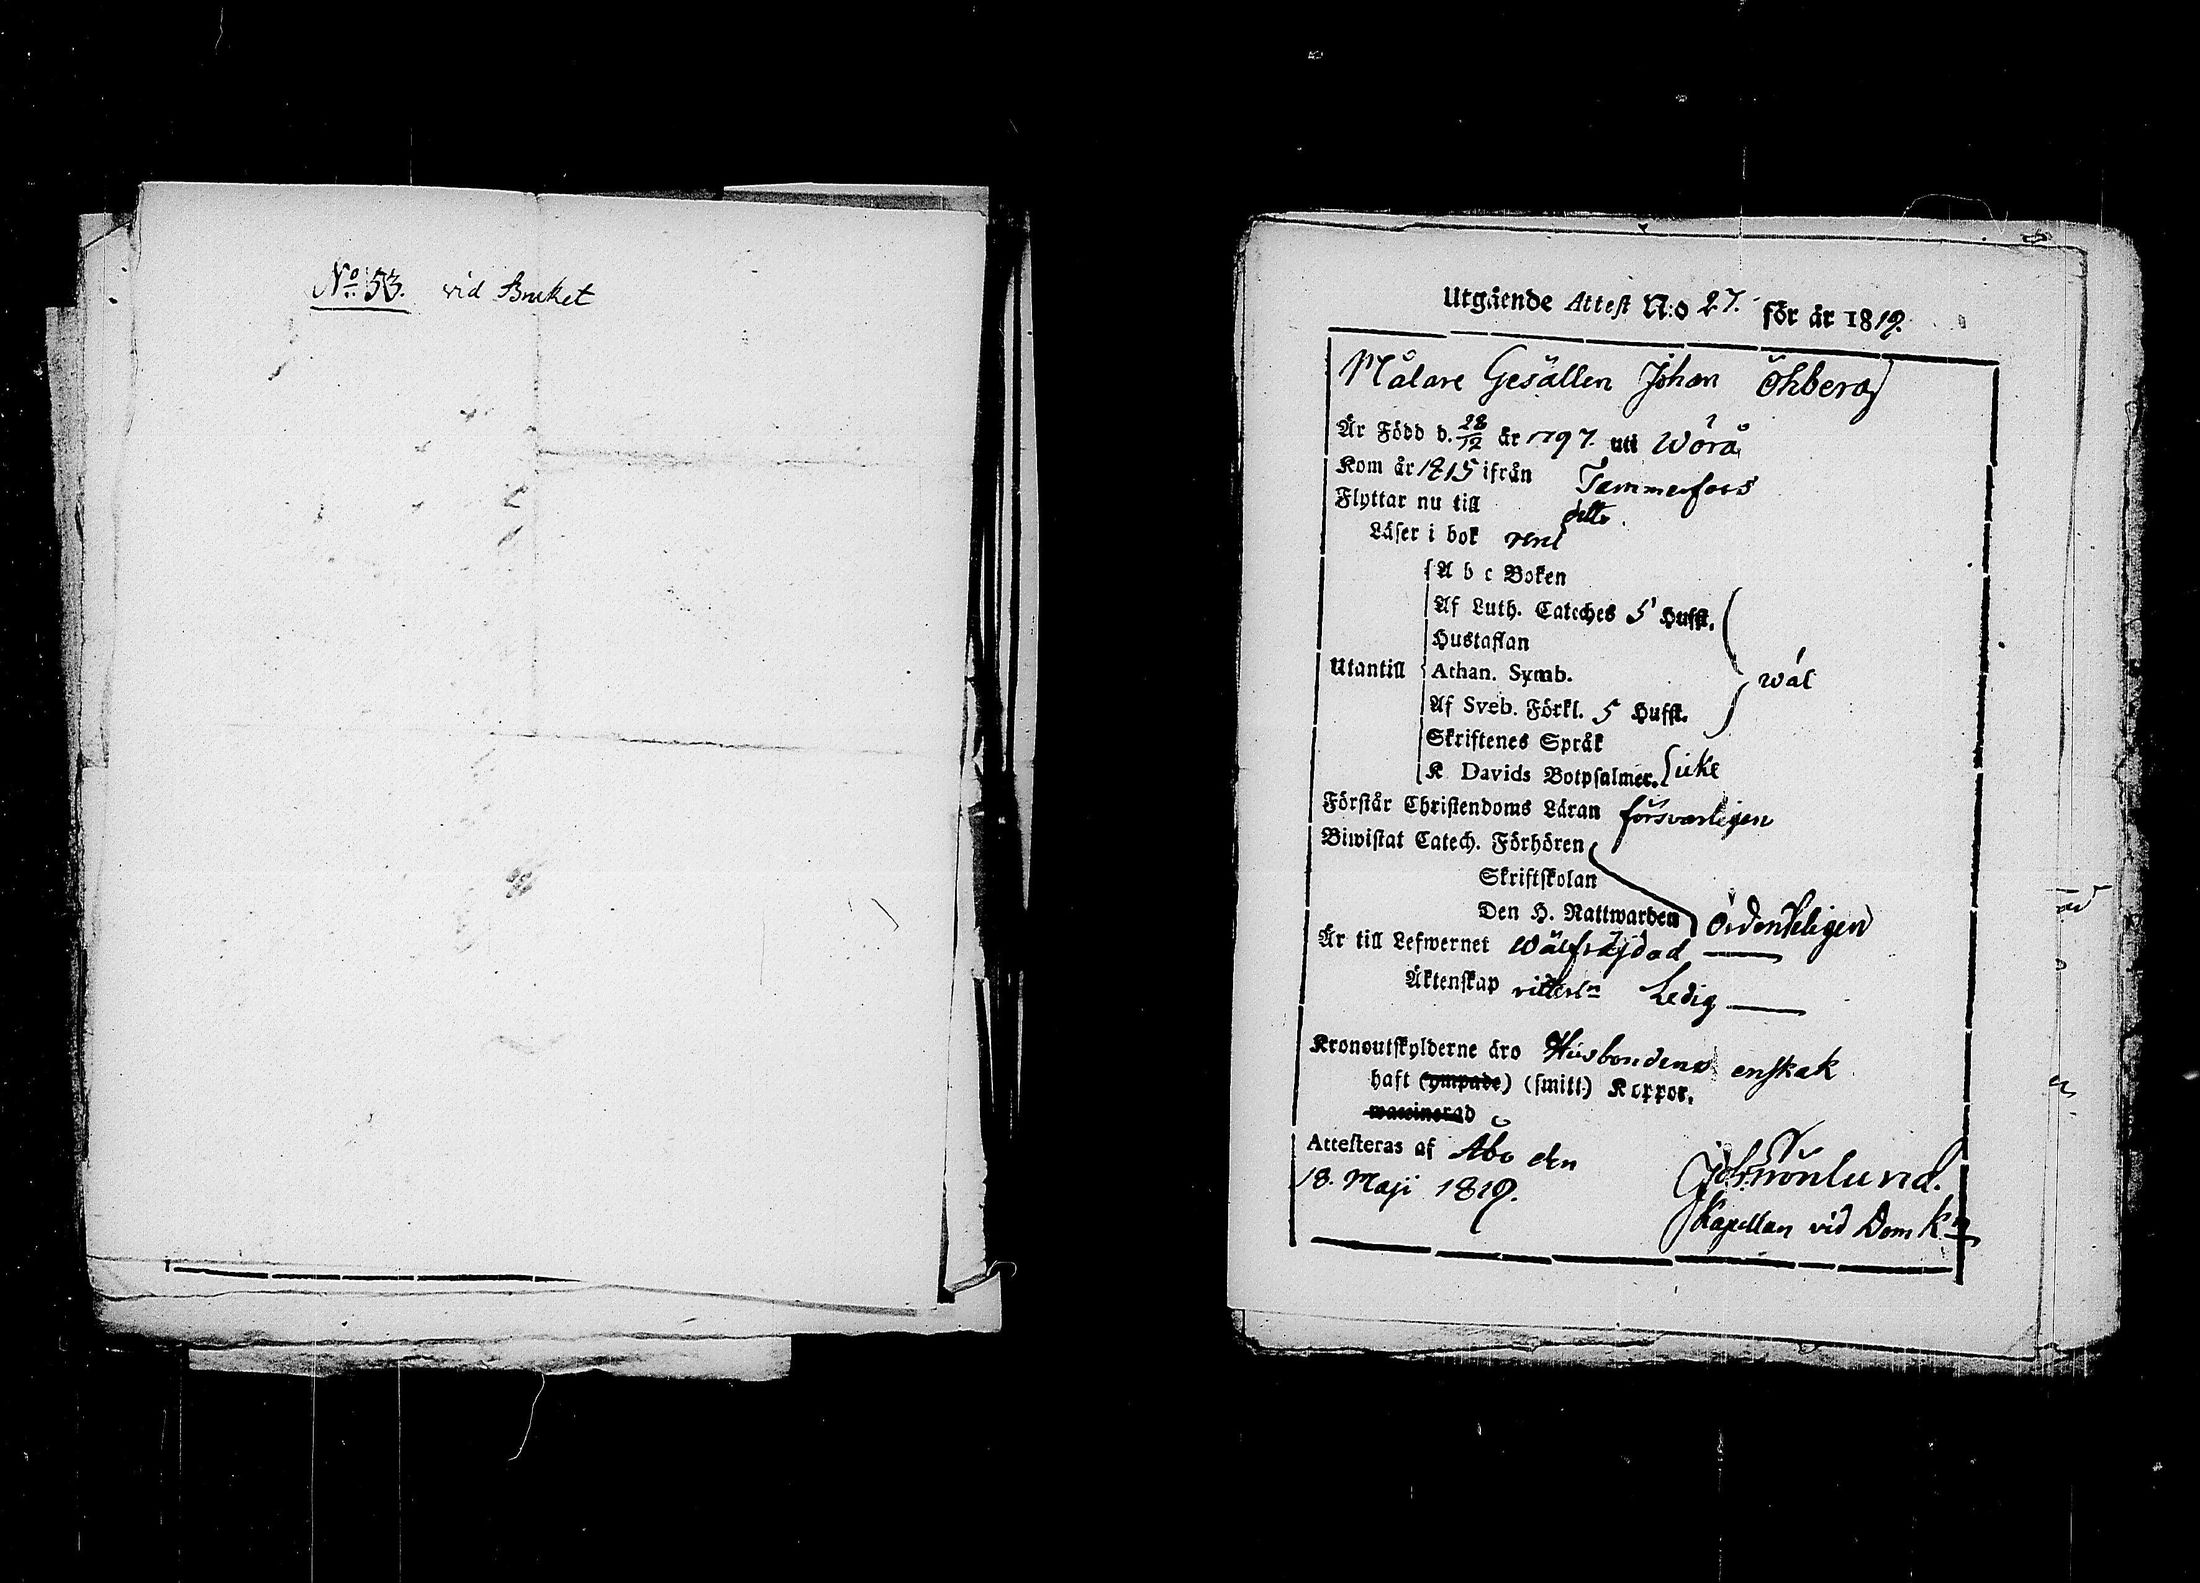 No 53. vid Bruket
Utgående Attest N:o 27. för år 1819.
Målare Gesällen Johan Öhberg
Är Född d. 28/12 år 1797. uti Wörå
Kom år 1815 ifrån Tammerfors
Flyttar nu till dito.
Läser i bok rent
A b c Boken
Af Luth. Cateches 5 Hufst.
Hustaflan
Utantill Athan. Symb. wäl
Af Sveb. Förkl. 5 Hufst.
Skriftenes Språk
K Davids Botpsalmer. icke
Förstår Christendoms Läran försvarligen
Biwistat Catech. Förhören
Skriftskolan
Den H. Nattwarden Ordenteligen
Är till Lefwernet Wälfräjdad
Äktenskap Ledig
Kronoutskylderne äro Husbondens enskak
haft (ympade) (smitt) Koppor.
waccinerad
Attesteras af Åbo den
18. Maji 1819.
Joh. Grönlund.
Kapellan vid Dom Kn